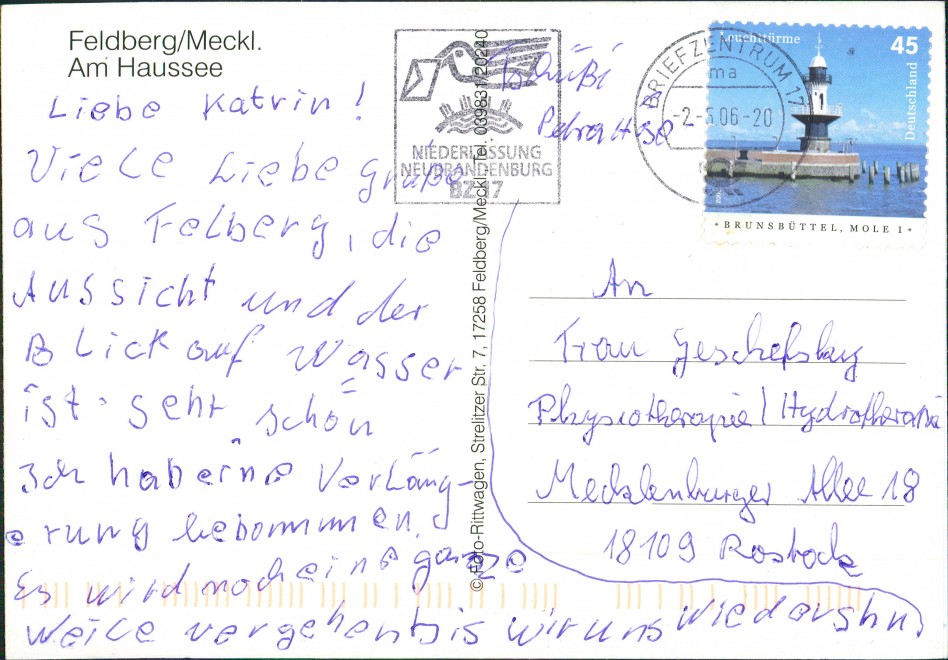 Feldberg/Meckl.
Am Haussee
Liebe Katrin!
Viele Liebe grüße
aus Felberg, die
Aussicht und der
Blick auf Wasser
ist sehr schön
Ich habe eine Verläng-
erung bekommen.
Es wird noch eine ganze
Weile vergehen bis wir uns wiedersehn,
Tschüßi
Petra
NIEDERLASSUNG
NEUBRANDENBURG
BZ 17
BRIEFZENTRUM 17
ma
-2.-5.06-20
Leuchttürme
45
Deutschland
* BRUNSBÜTTEL, MOLE 1 *
© Foto-Rittwagen, Strelitzer Str. 7, 17258 Feldberg/Meckl. Tel. 039831/20240
An
Frau
Physiotherapie/Hydrotherapie
Mecklenburger Allee 18
18109 Rostock